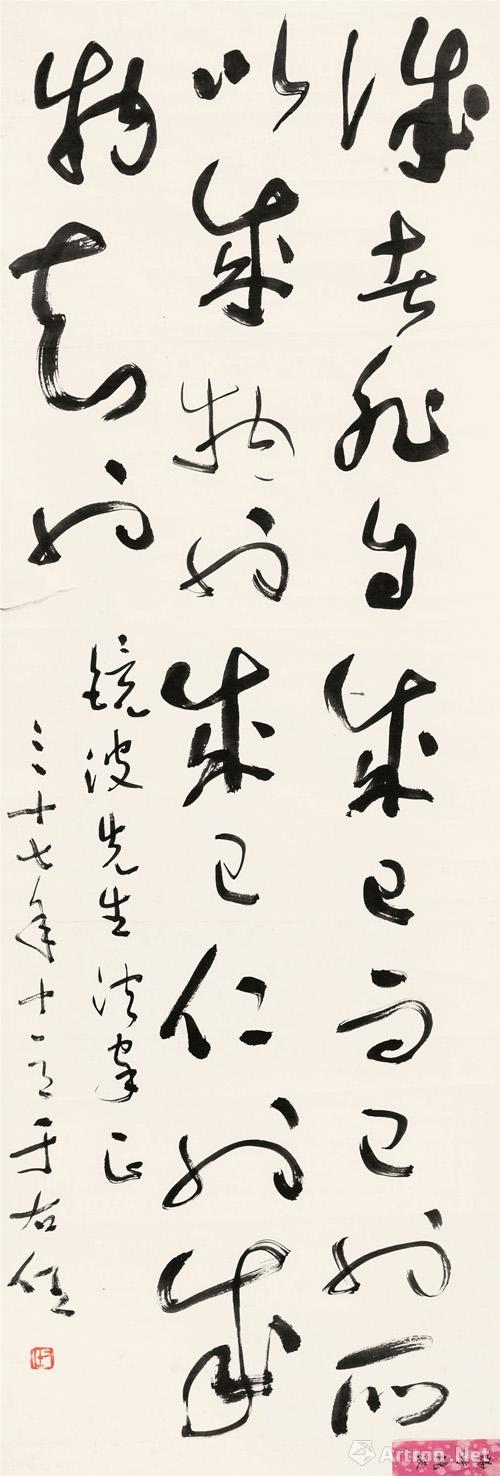 誠者非自成己而已也所
以成物也成己仁也成
物知也
鏡波先生法家正
三十七年十一月于右任
Artron.Net